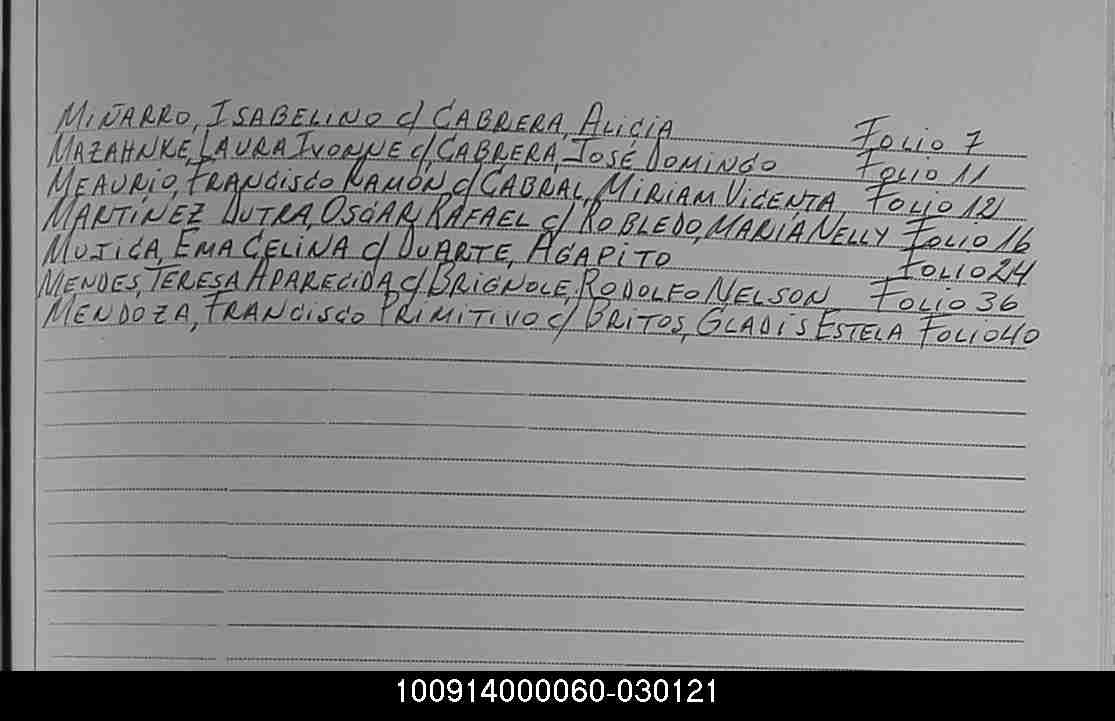 MIÑARRO, ISABELINO c/ CABRERA, ALICIA FOLIO 7
MAZAHNKE, LAURA IVONNE c/ CABRERA, JOSÉ DOMINGO FOLIO 11
MEAURIO, FRANCISCO RAMÓN c/ CABRAL, MIRIAM VICENTA FOLIO 12
MARTÍNEZ DUTRA, OSCAR RAFAEL c/ ROBLEDO, MARÍA NELLY FOLIO 16
MUJICA, EMA CELINA c/ DUARTE, AGAPITO FOLIO 24
MENDES, TERESA APARECIDA c/ BRIGNOLE, RODOLFO NELSON FOLIO 36
MENDOZA, FRANCISCO PRIMITIVO c/ BRITOS, GLADIS ESTELA FOLIO 40
100914000060-030121